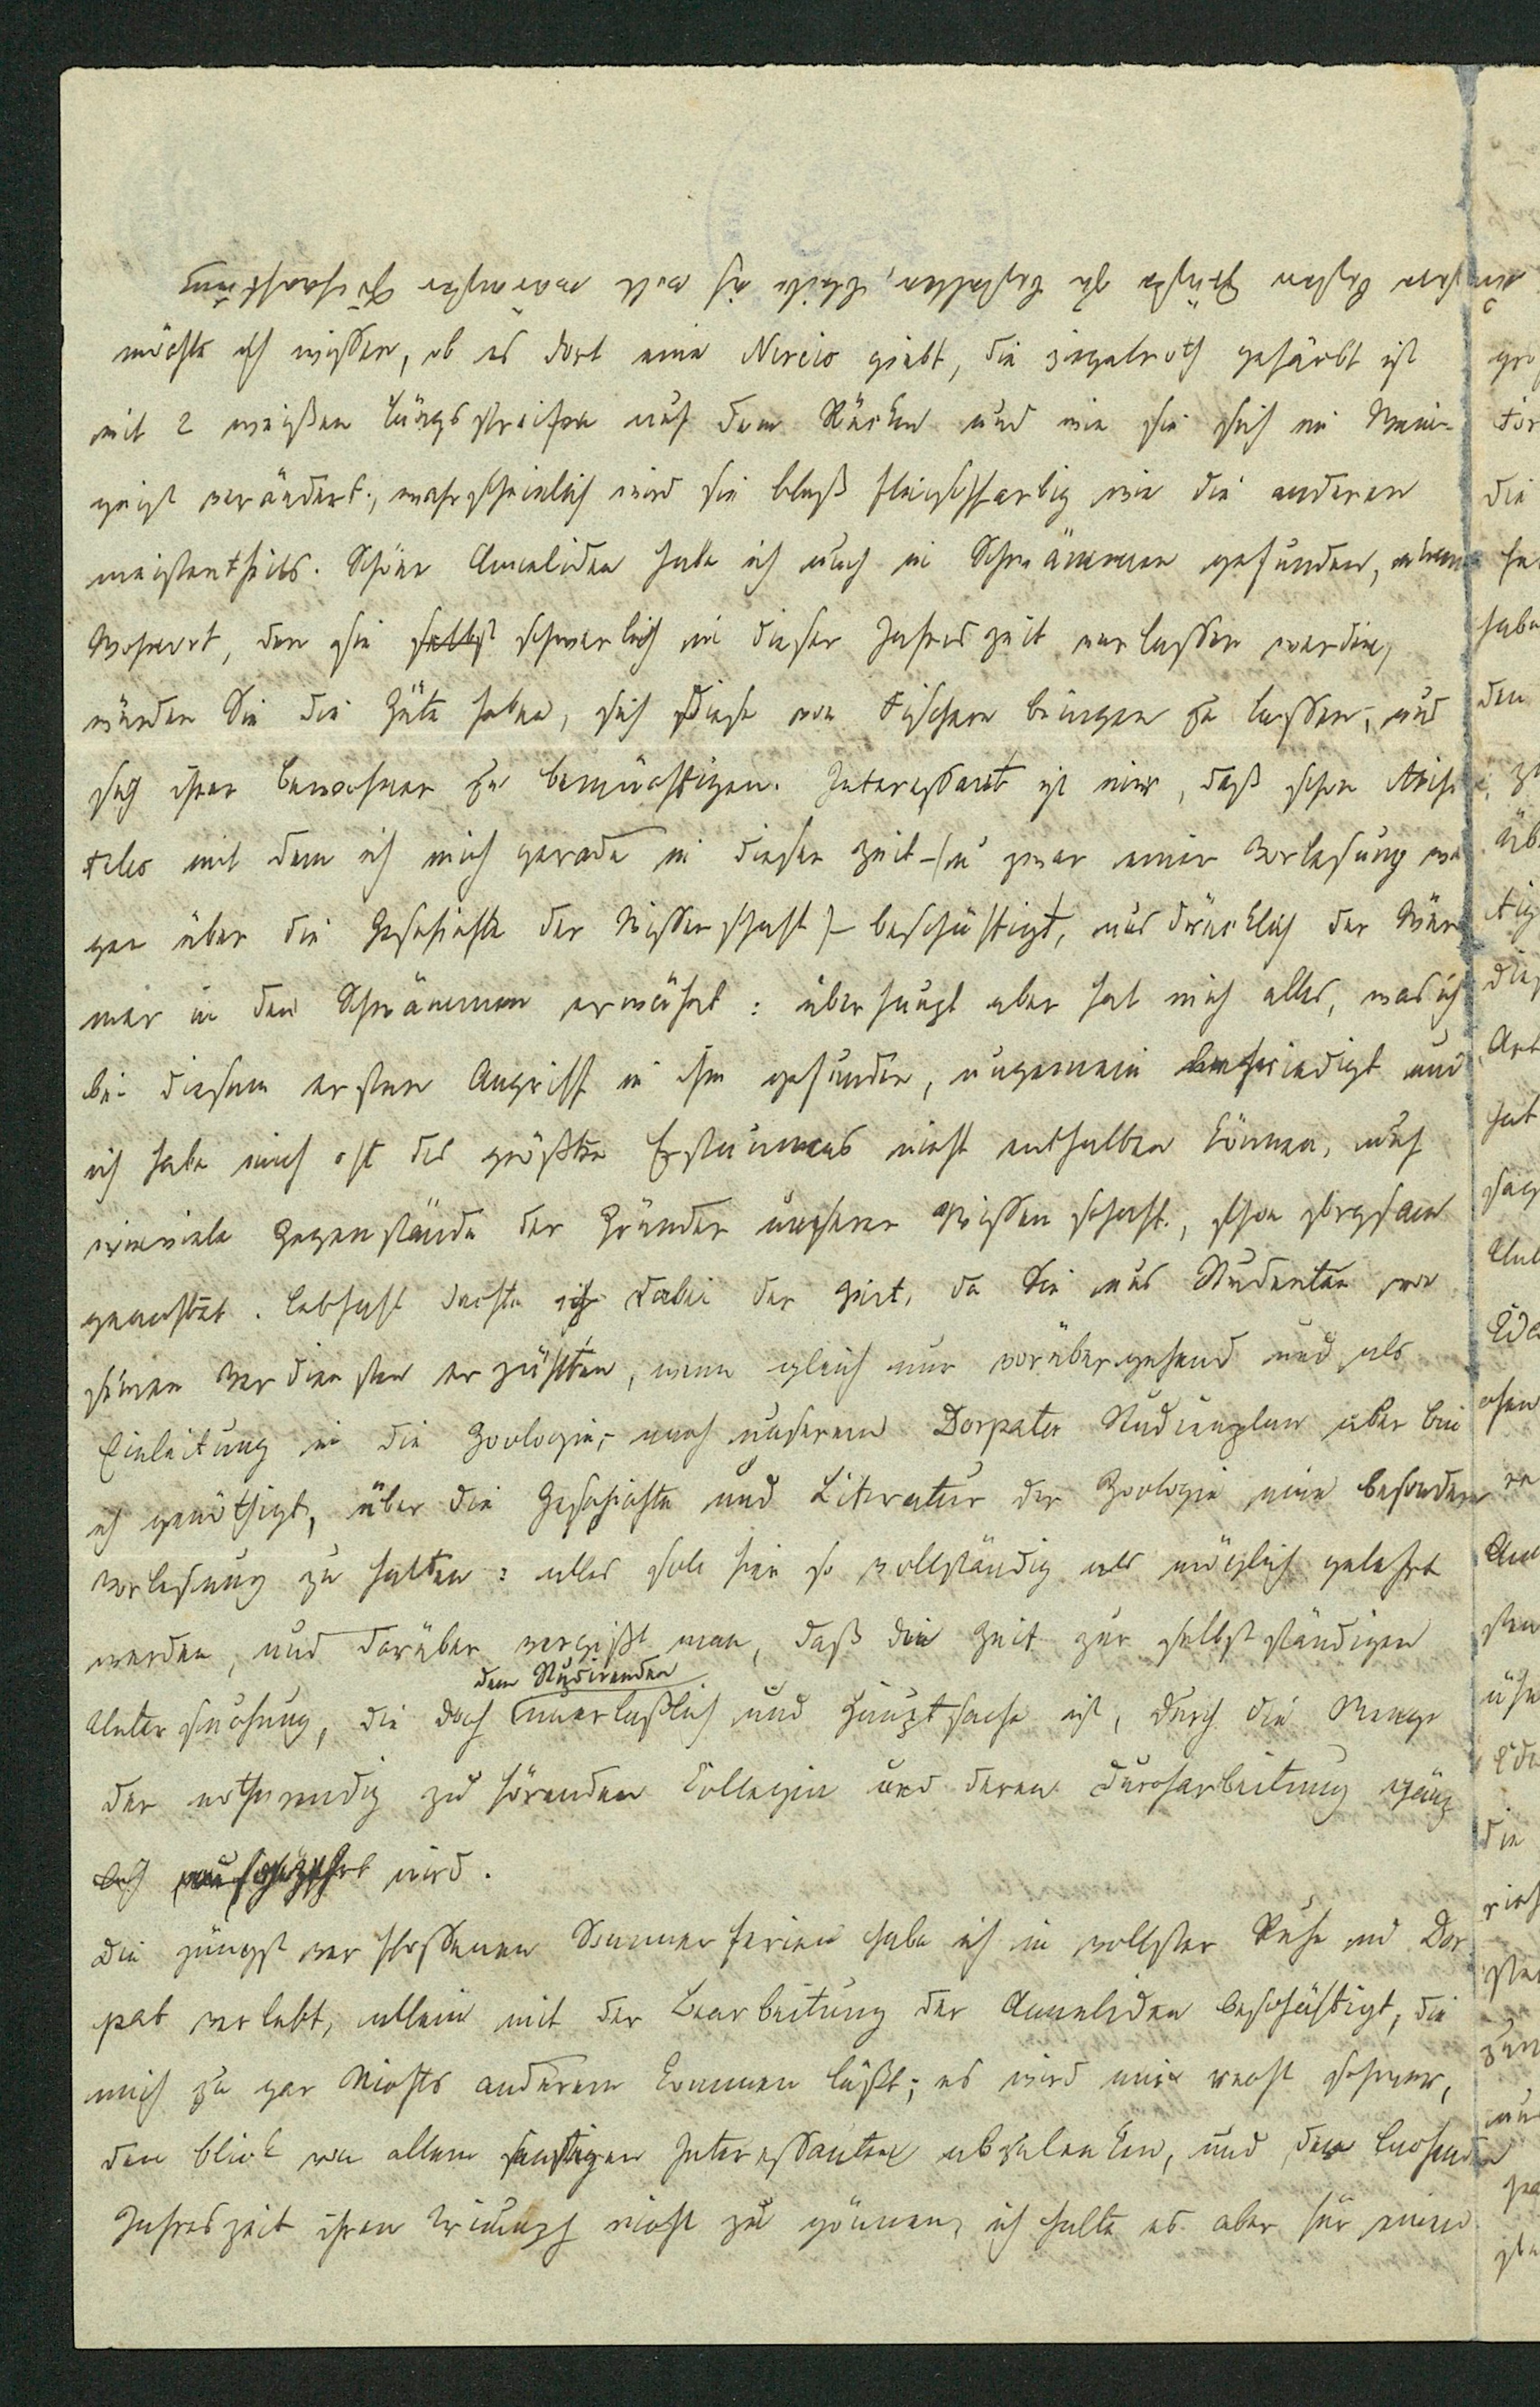 möchte ich wissen, ob es dort eine Nereis giebt, die ziegelroth gefärbt ist
mit 2 weißen Längsstreifen auf dem Rücken und wie sie sich im Wein-
geist verändert; wahrscheinlich wird sie blaß fleischfarbig wie die anderen
meistentheils. Schöne Anneliden habe ich auch in Schwämmen gefunden, einem
Wohnort, den sie selbst schwerlich in dieser Jahreszeit verlassen werden,
würden Sie die Güte haben, sich diese von Fischern bringen zu lassen, und
sich ihrer Bewohner zu bemächtigen. Interessant ist mir, daß schon Aristo
teles mit dem ich mich gerade in dieser Zeit – (u zwar einer Vorlesung we
gen über die Geschichte der Wissenschaft) – beschäftigt, ausdrücklich der Wür
mer in den Schwämmen erwähnt: überhaupt aber hat mich alles, was ich
bei diesem ersten Angriff in ihm gefunden, ungemein befriedigt und
ich habe mich oft des größten Erstaunens nicht enthalten können, auf
wieviele Gegenstände der Gründer unserer Wissenschaft, schon sorgsam
geachtet. Lebhaft dachte ich dabei der Zeit, da Sie uns Studenten von
seinen Verdiensten erzählten, wenn gleich nur vorübergehend und als
Einleitung in die Zoologie; nach unserem Dorpater Studienplan aber bin
ich genöthigt, über die Geschichte und Literatur der Zoologie eine besondere
Vorlesung zu halten: alles soll hier so vollständig als möglich gelehrt
werden, und darüber vergißt man, daß die Zeit zur selbstständigen
dem Studirenden
Untersuchung, die doch unerlaßlich und Hauptsache ist, durch die Menge
der nothwendig zu hörenden Collegien und deren Durcharbeitung gänz
lich wird.
Die jüngst verflossenen Sommerferien habe ich in vollster Ruhe in Dor
pat verlebt, allein mit der Bearbeitung der Anneliden beschäftigt, die
mich zu gar Nichts anderem kommen läßt; es wird mir recht schwer,
den Blick von allem sonstigen Interessanten abzulenken, und der lachenden
Jahreszeit ihren Triumph nicht zu gönnen, ich halte es aber für eine